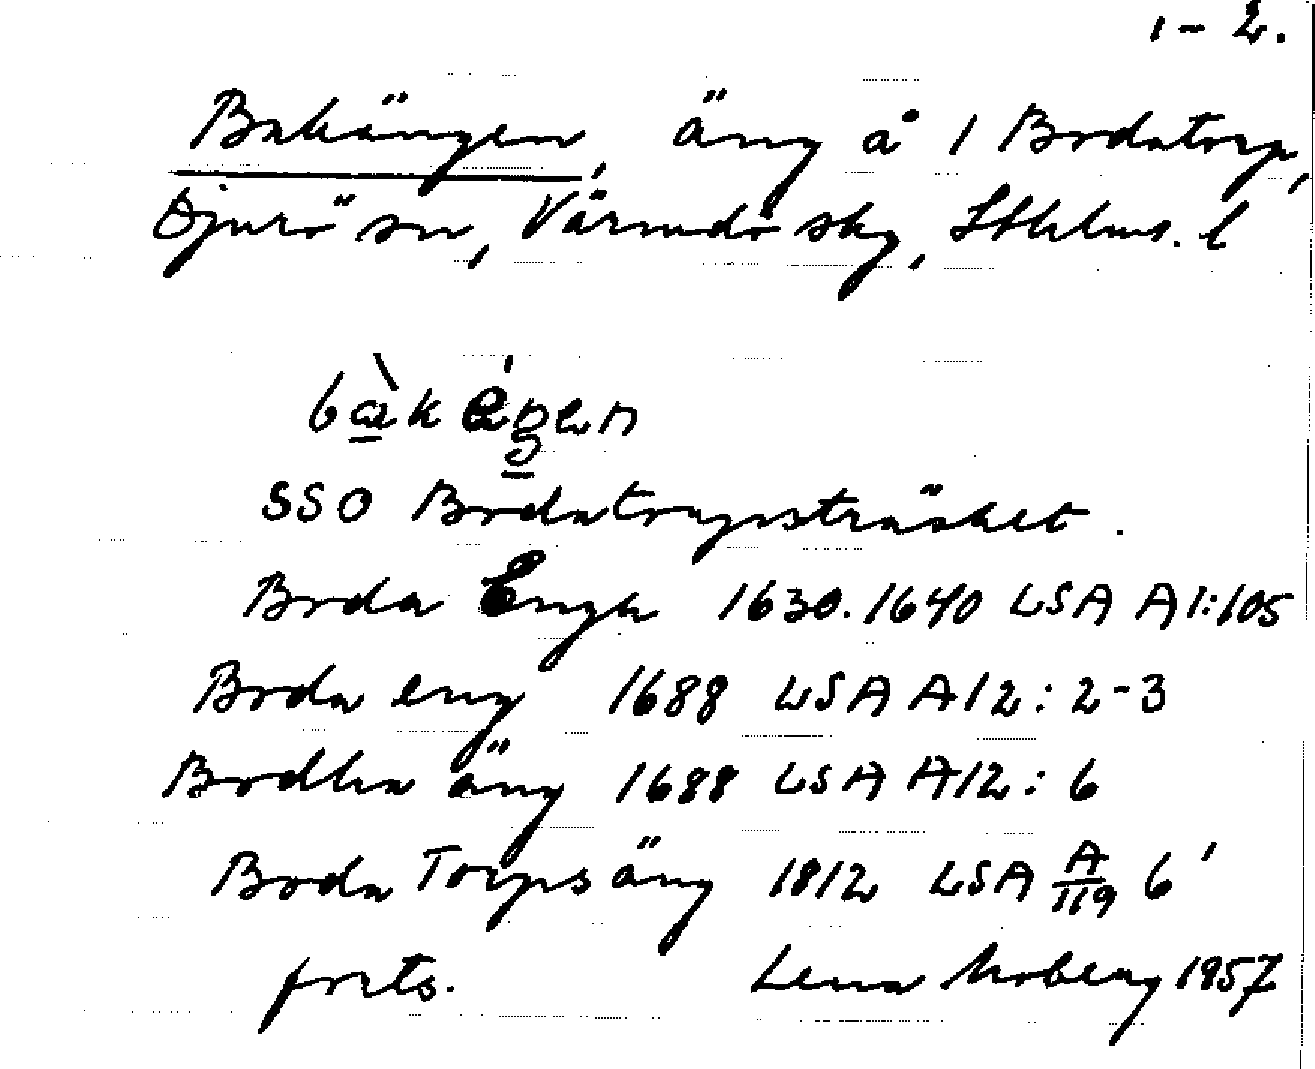 1-2.
Bakängen, äng å 1 Bodatorp,
Djurö sn, Värmdö skg, Sthlms. l
SSO Bodatorpsträsket.
Boda Enga 1630. 1640 LSA A1:105
Boda eng 1688 LSA A12: 2-3
Bodha äng 1688 LSA A12: 6
Boda Torps äng 1812 LSA A/119 6'
forts. Lena Moberg 1957